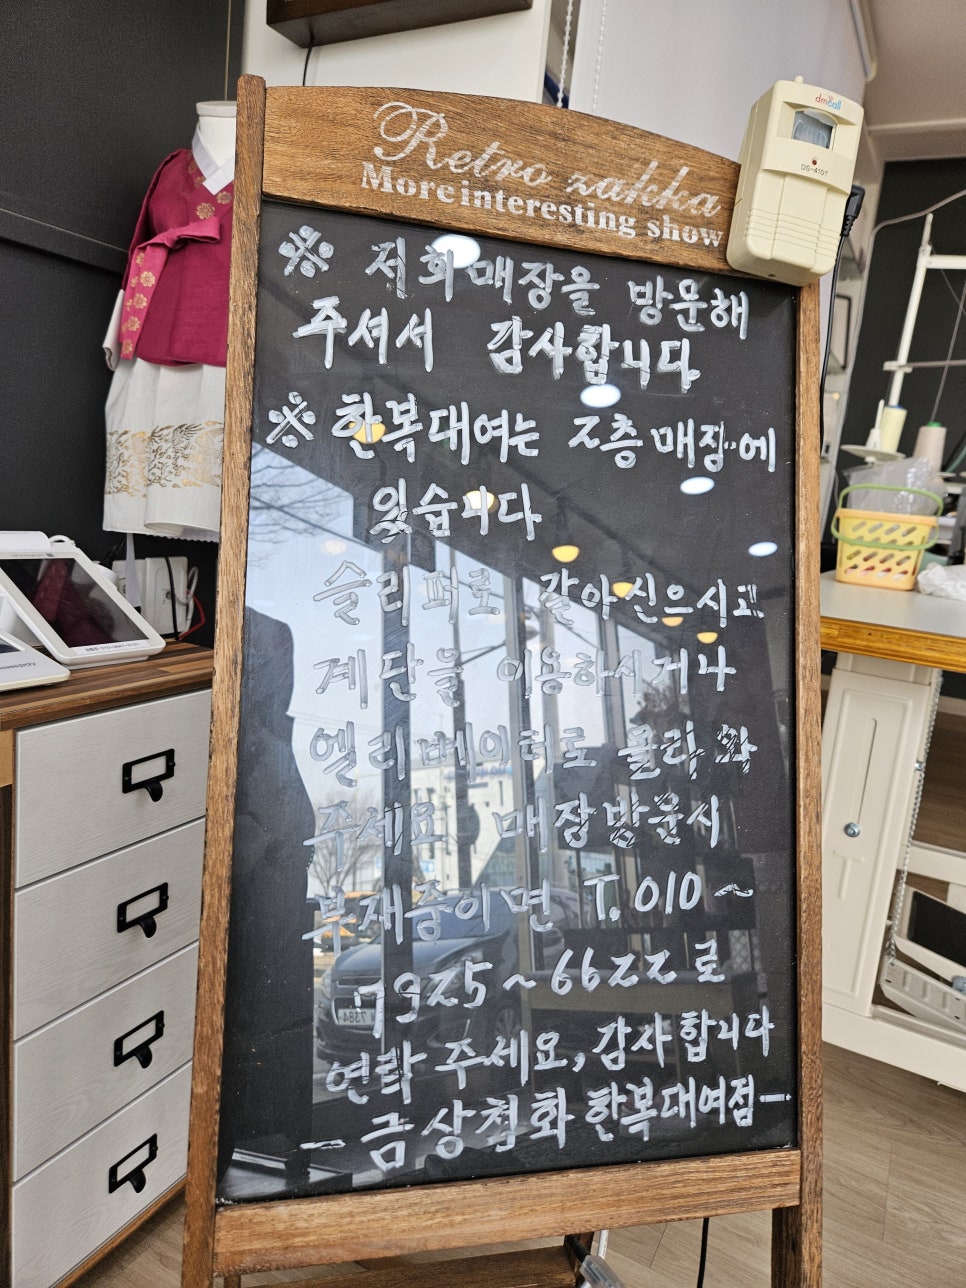 Retro zakka
More interesting show
dmcall
DS-410T
※ 저희매장을 방문해
주셔서 감사합니다
※ 한복대여는 2층매장에
있습니다
슬리퍼로 갈아신으시고
계단을 이용하시거나
엘리베이터로 올라와
주세요 매장방문시
부재중이면 T.010~
7925~6622로
연락주세요, 감사합니다
- 금상첨화 한복대여점 -